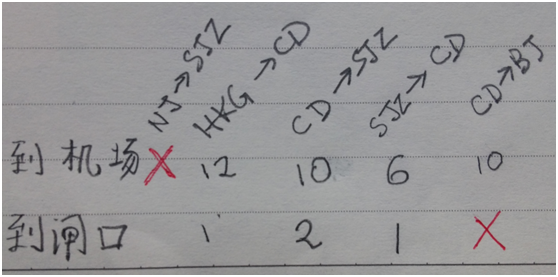 NJ→SJZ HKG→CD CD→SJZ SJZ→CD CD→BJ
到机场 X 12 10 6 10
到闸口 1 2 1 X